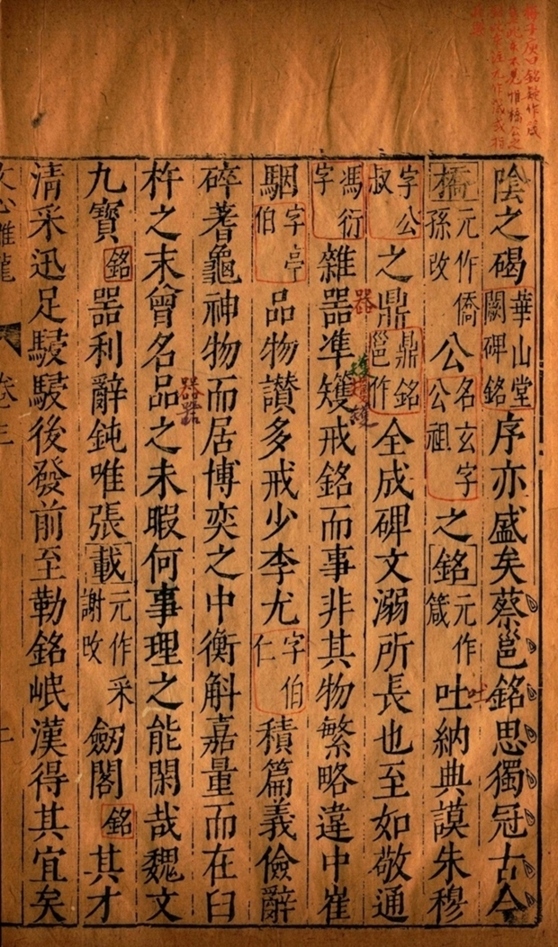 陰之碣華山堂闕碑銘序亦盛矣蔡邕銘思獨冠古今
橋元作僑孫攺公名玄字公祖之銘元作箴吐納典謨朱穆
字公叔之鼎鼎銘邕作全成碑文溺所長也至如敬通
馮衍字雜器準矱戒銘而事非其物繁略違中崔
駰字亭伯品物讃多戒少李尤字伯仁積篇義儉辭
碎蓍龜神物而居博奕之中衡斛嘉量而在臼
杵之末曾名品之未暇何事理之能閑哉魏文
九寶銘器利辭鈍唯張載元作采謝攺劒閣銘其才
清采迅足駸駸後發前至勒銘岷漢得其宜矣
文心雕龍 卷三